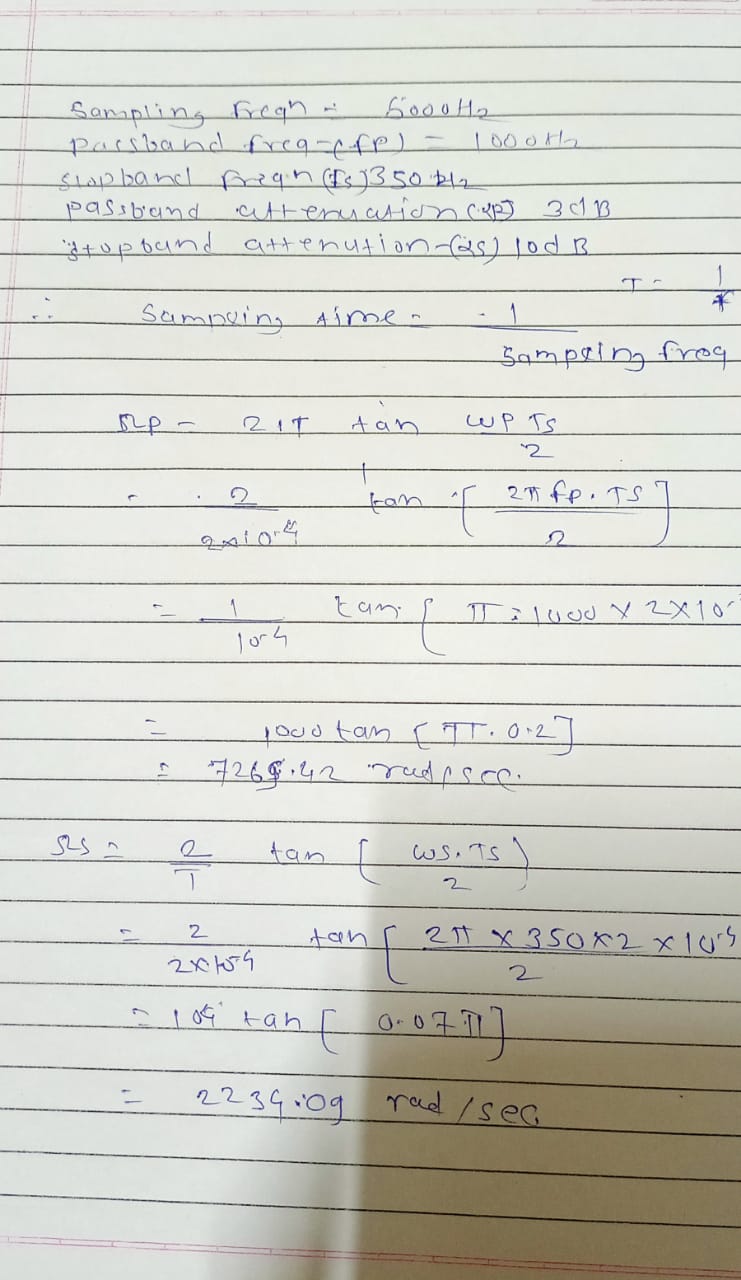 Sampling freqn = 5000Hz
passband freq-(fp) = 1000Hz
stopband freqn (fs) 350 Hz
passband attenuation (αp) 3dB
stopband attenution-(αs) 10dB
T = 1
f
∴ Sampling time = 1
Sampling freq
Ωp - 2/T tan wp Ts
2
= 2 tan [ 2π fp. TS ]
2×10⁻⁴ 2
= 1 tan [ π × 1000 × 2×10⁻
10⁻⁴
= 1000 tan [π. 0.2]
= 7265.42 rad/sec.
Ωs = 2 tan [ ws. Ts )
T 2
= 2 tan [ 2π × 350×2 ×10⁻⁴
2×10⁻⁴ 2
= 10⁴ tan [ 0.07π]
= 2234.09 rad /sec